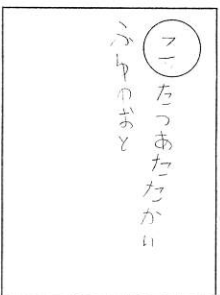 こたつあたたかい
ふゆのおと